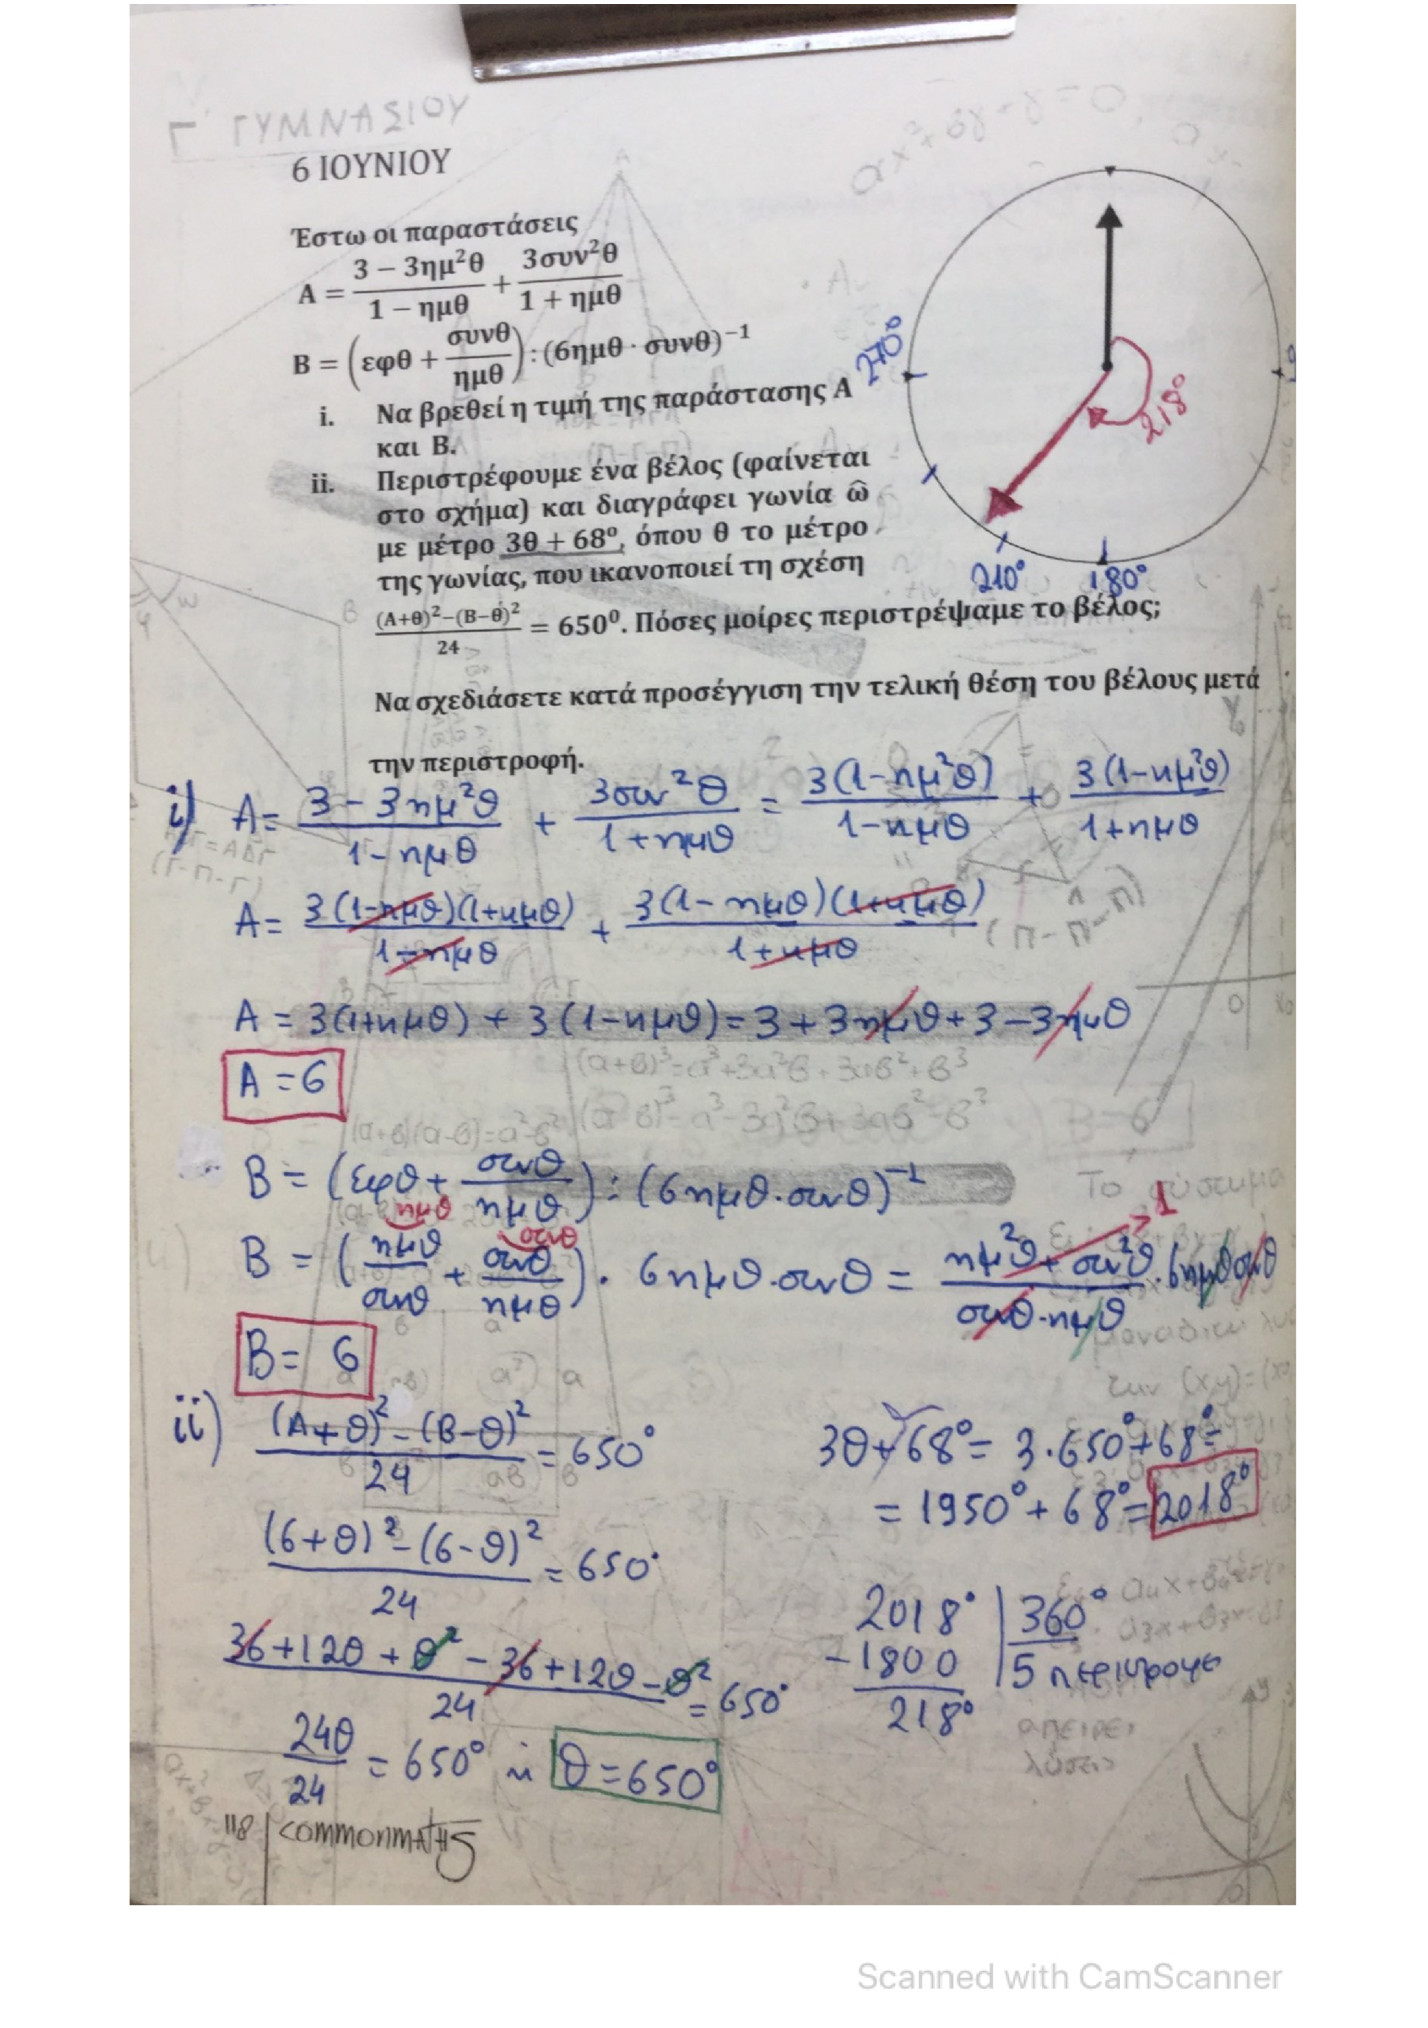 Γ ΓΥΜΝΑΣΙΟΥ
6 ΙΟΥΝΙΟΥ
Έστω οι παραστάσεις
Α = (3 − 3ημ²θ)/(1 − ημθ) + (3συν²θ)/(1 + ημθ)
Β = (εφθ + συνθ/ημθ) : (6ημθ · συνθ)⁻¹
i. Να βρεθεί η τιμή της παράστασης Α
και Β.
ii. Περιστρέφουμε ένα βέλος (φαίνεται
στο σχήμα) και διαγράφει γωνία ω̂
με μέτρο 3θ + 68º, όπου θ το μέτρο
της γωνίας, που ικανοποιεί τη σχέση
((Α+θ)²−(Β−θ)²)/24 = 650⁰. Πόσες μοίρες περιστρέψαμε το βέλος;
Να σχεδιάσετε κατά προσέγγιση την τελική θέση του βέλους μετά
την περιστροφή.
270°
218°
210°
180°
i) Α = (3 − 3ημ²θ)/(1 − ημθ) + (3συν²θ)/(1 + ημθ) = 3(1−ημ²θ)/(1−ημθ) + 3(1−ημ²θ)/(1+ημθ)
Α = 3(1−ημθ)(1+ημθ)/(1−ημθ) + 3(1−ημθ)(1+ημθ)/(1+ημθ)
Α = 3(1+ημθ) + 3(1−ημθ) = 3 + 3ημθ + 3 − 3ημθ
Α = 6
(α+β)³=α³+3α²β+3αβ²+β³
Β = (εφθ + συνθ/ημθ) : (6ημθ·συνθ)⁻¹
ημθ συνθ 1
Β = (ημθ/συνθ + συνθ/ημθ) · 6ημθ·συνθ = (ημ²θ + συν²θ)/(συνθ·ημθ) · 6ημθσυνθ
Β = 6
ii) ((Α+θ)² − (Β−θ)²)/24 = 650°
((6+θ)² − (6−θ)²)/24 = 650°
(36 + 12θ + θ² − 36 + 12θ − θ²)/24 = 650°
24θ/24 = 650° ή θ = 650°
3θ + 68° = 3·650° + 68° =
= 1950° + 68° = 2018°
2018° | 360°
−1800 | 5 περιστροφές
218°
άπειρες
λύσεις
118 | COMMONMATHS
Scanned with CamScanner